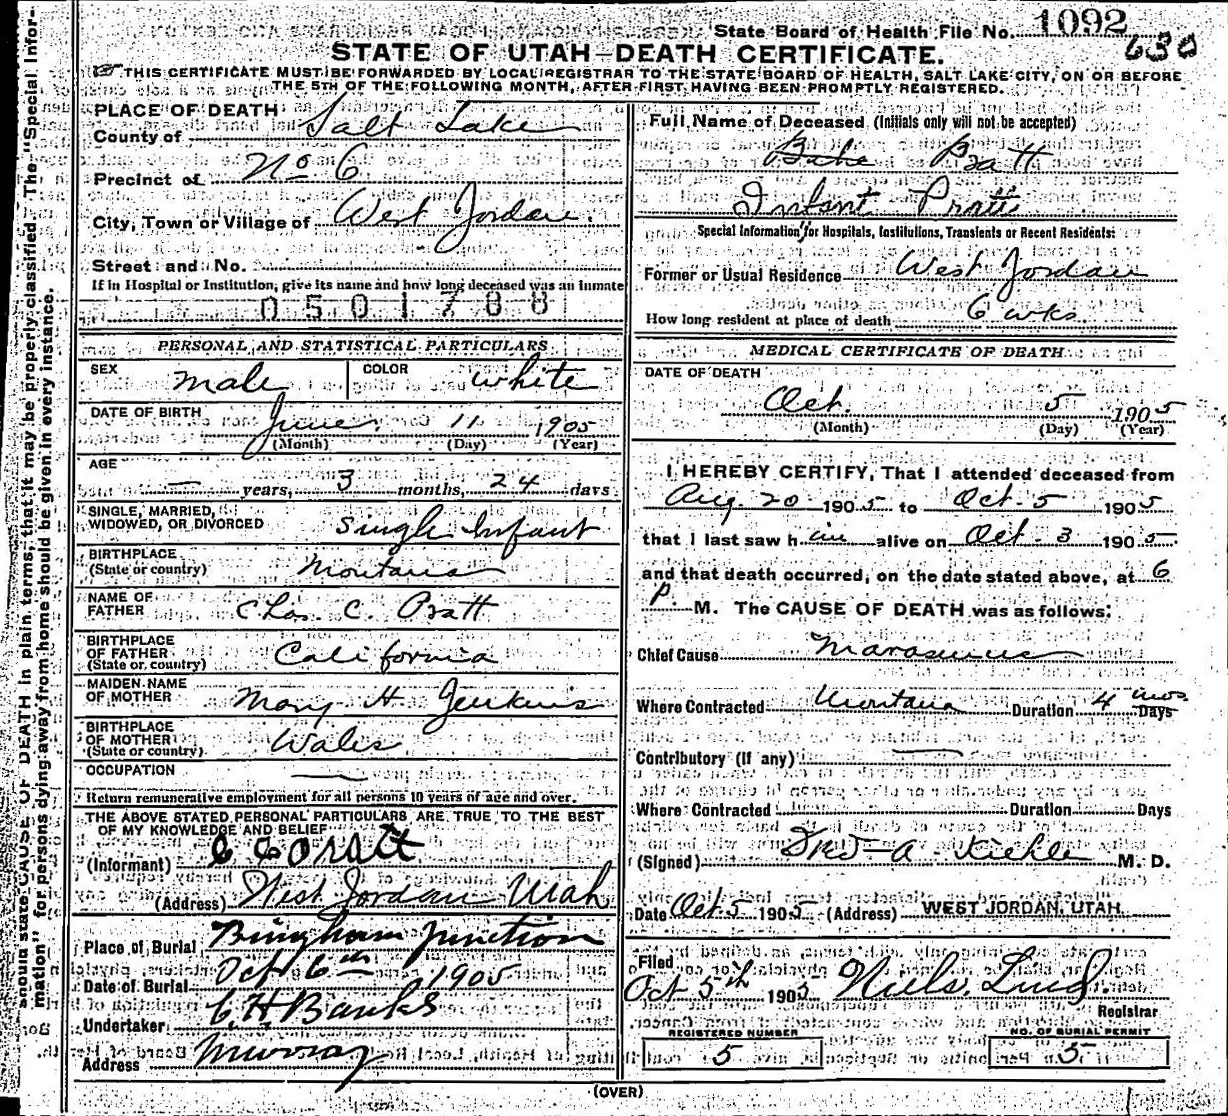 State Board of Health File No. 1092
630
STATE OF UTAH—DEATH CERTIFICATE.
☞ THIS CERTIFICATE MUST BE FORWARDED BY LOCAL REGISTRAR TO THE STATE BOARD OF HEALTH, SALT LAKE CITY, ON OR BEFORE
THE 5TH OF THE FOLLOWING MONTH, AFTER FIRST HAVING BEEN PROMPTLY REGISTERED.
PLACE OF DEATH
County of Salt Lake
Precinct of No 6
City, Town or Village of West Jordan.
Street and No.
If in Hospital or Institution, give its name and how long deceased was an inmate
0501788
PERSONAL AND STATISTICAL PARTICULARS
SEX male COLOR white
DATE OF BIRTH
June 11 1905
(Month) (Day) (Year)
AGE
— years, 3 months, 24 days
SINGLE, MARRIED,
WIDOWED, OR DIVORCED Single Infant
BIRTHPLACE
(State or country) Montana
NAME OF
FATHER Chas. C. Pratt
BIRTHPLACE
OF FATHER
(State or country) California
MAIDEN NAME
OF MOTHER Mary H Jenkins
BIRTHPLACE
OF MOTHER
(State or country) Wales
OCCUPATION —
Return remunerative employment for all persons 10 years of age and over.
THE ABOVE STATED PERSONAL PARTICULARS ARE TRUE TO THE BEST
OF MY KNOWLEDGE AND BELIEF
(Informant) C C Pratt
(Address) West Jordan Utah
Place of Burial Bingham Junction
Date of Burial Oct 6th 1905
Undertaker C. H Banks
Address Murray
Full Name of Deceased (Initials only will not be accepted)
Babe Pratt
Infant Pratt
Special Information for Hospitals, Institutions, Transients or Recent Residents:
Former or Usual Residence West Jordan
How long resident at place of death 6 wks.
MEDICAL CERTIFICATE OF DEATH
DATE OF DEATH
Oct. 5 1905
(Month) (Day) (Year)
I HEREBY CERTIFY, That I attended deceased from
Aug. 20 1905 to Oct. 5 1905
that I last saw him alive on Oct. 3 1905
and that death occurred, on the date stated above, at 6
P. M. The CAUSE OF DEATH was as follows:
Chief Cause Marasmus
Where Contracted Montana Duration 4 mos Days
Contributory (If any) —
Where Contracted Duration Days
(Signed) A. Kiehle M. D.
Date Oct. 5 1905 (Address) WEST JORDAN, UTAH.
Filed
Oct 5th 1905 Niels Lind
Registrar
REGISTERED NUMBER
5
NO. OF BURIAL PERMIT
5
(OVER)
should state CAUSE OF DEATH in plain terms, that it may be properly classified. The "Special Infor-
mation" for persons dying away from home should be given in every instance.